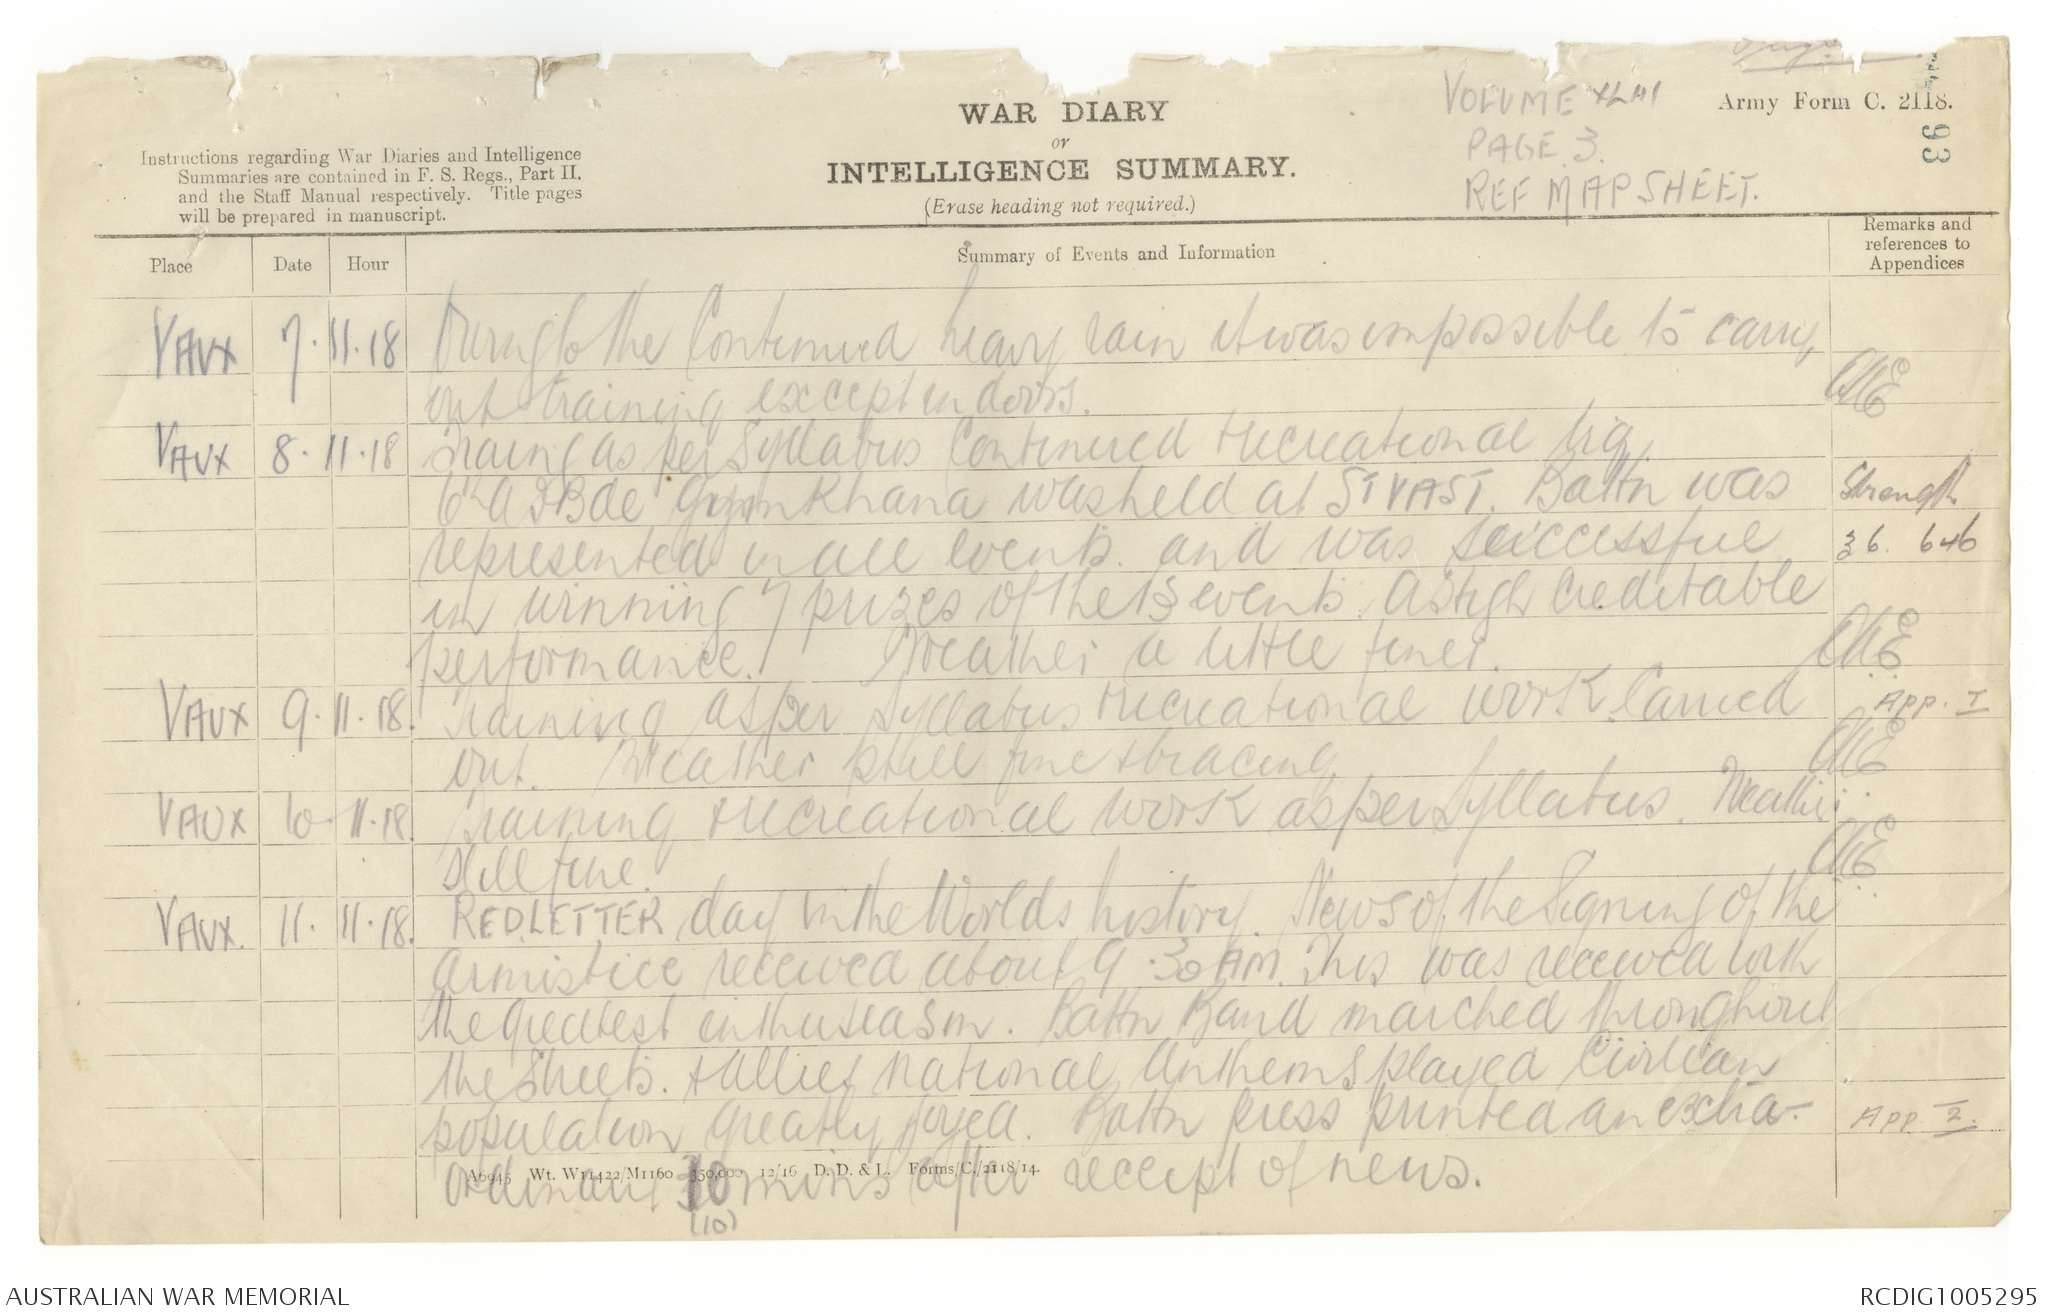 VOLUME XLIII
Army Form C. 2118.
PAGE 3.
REF MAP SHEET.
93
WAR DIARY
or
INTELLIGENCE SUMMARY.
(Erase heading not required.)
Instructions regarding War Diaries and Intelligence
Summaries are contained in F. S. Regs., Part II.
and the Staff Manual respectively. Title pages
will be prepared in manuscript.
Place Date Hour Summary of Events and Information Remarks and references to Appendices
VAUX 7. 11.18 the Continued heavy rain it was impossible to carry
out training except indoors.
VAUX 8. 11.18 Traing as per Syllabus Continued + recreational trg
6th A I Bde Gymnkhana was held at ST VAST. Battn was Strength
represented in all events and was successful 36. 646
in winning 7 prizes of the 13 events. A High Creditable
performance. Weather a little finer.
VAUX 9. 11.18. Training as per Syllabus + recreational work Carried App. I
out. Weather still fine + bracing
VAUX 10 11.18. Training + recreational work as per Syllabus. Weather
still fine.
VAUX. 11. 11.18. RED LETTER day in the Worlds history. News of the Signing of the
Armistice received about 9.30 AM. This was received with
the greatest enthusiasm. Battn Band marched throughout
the Streets. + Allies National Anthems played Civilian
population greatly joyed. Battn press printed an extra- App. 2.
ordinary 10 mins after receipt of news.
(10)
A6945 Wt. W11422/M1160 350,000 12/16 D. D. & L. Forms/C./2118/14.
AUSTRALIAN WAR MEMORIAL
RCDIG1005295